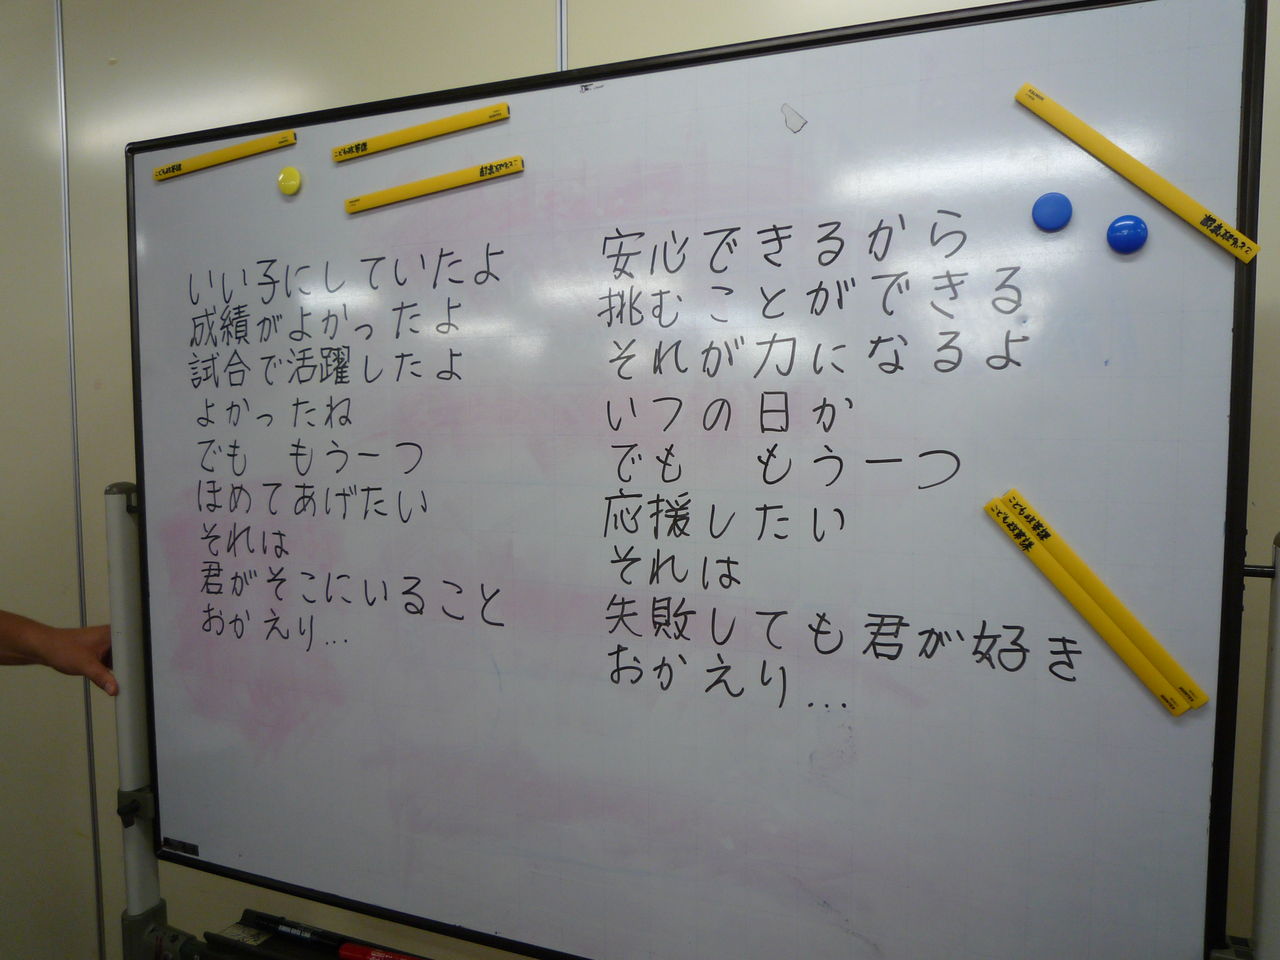 いい子にしていたよ
成績がよかったよ
試合で活躍したよ
よかったね
でも もう一つ
ほめてあげたい
それは
君がそこにいること
おかえり…
安心できるから
挑むことができる
それが力になるよ
いつの日か
でも もう一つ
応援したい
それは
失敗しても君が好き
おかえり…
こども政策課
こども政策課
こども政策課
こども政策課
こども政策課
こども政策課